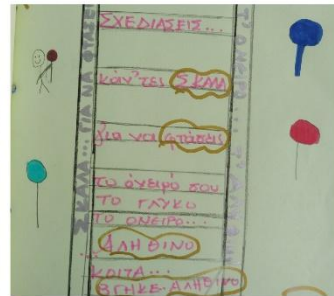 ΣΧΕΔΙΑΣΕΙΣ...
κάν'τες ΣΚΑΛΑ
για να φτάσεις
το όνειρό σου
ΤΟ ΓΛΥΚΟ
ΤΟ ΟΝΕΙΡΟ...
ΑΛΗΘΙΝΟ
ΚΟΙΤΑ...
ΒΓΗΚΕ ΑΛΗΘΙΝΟ
ΣΚΑΛΑ... ΓΙΑ ΝΑ ΦΤΑΣΕΙΣ